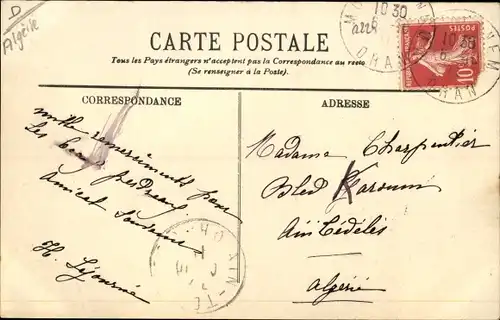 D
Algérie
10 30
ORAN
10 30
ORAN
10
CARTE POSTALE
Tous les Pays étrangers n'acceptent pas la Correspondance au recto
(Se renseigner à la Poste).
CORRESPONDANCE
mille remerciements pour
Les
amical Souvenir
H. Lejourné
ADRESSE
Madame Charpentier
Bled Karoum
Aïn Tédelès
Algérie